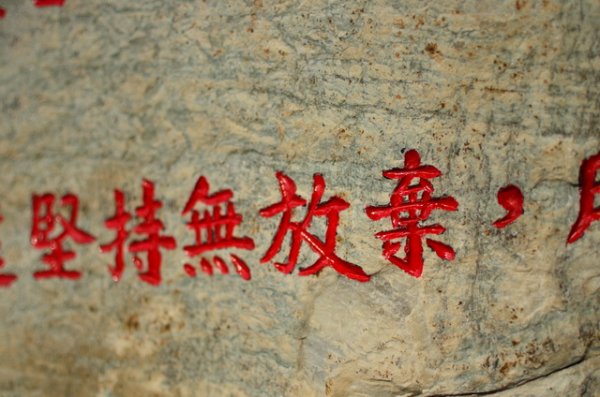 堅持無放棄，